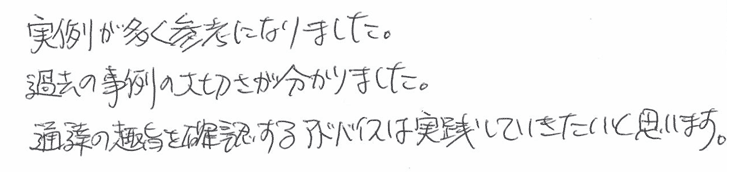 実例が多く参考になりました。
過去の事例の大切さが分かりました。
通達の趣旨を確認するアドバイスは実践していきたいと思います。